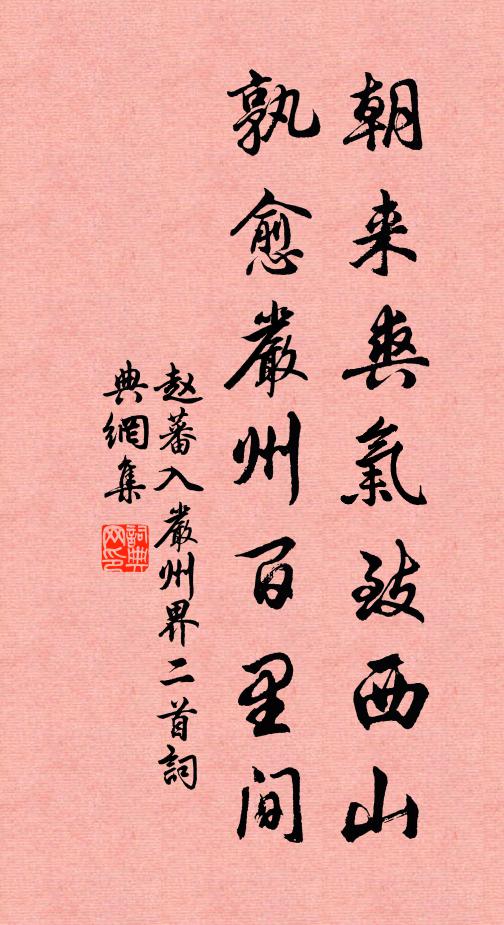 朝来爽氣致西山
孰愈嚴州百里间
赵蕃入嚴州界二首詞
典網集
詞典
网印